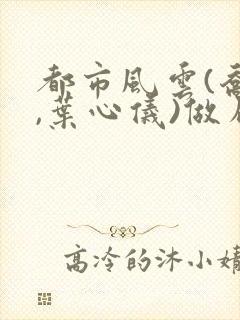 都市風雲(喬
,葉心儀)做
高冷的沐小婧